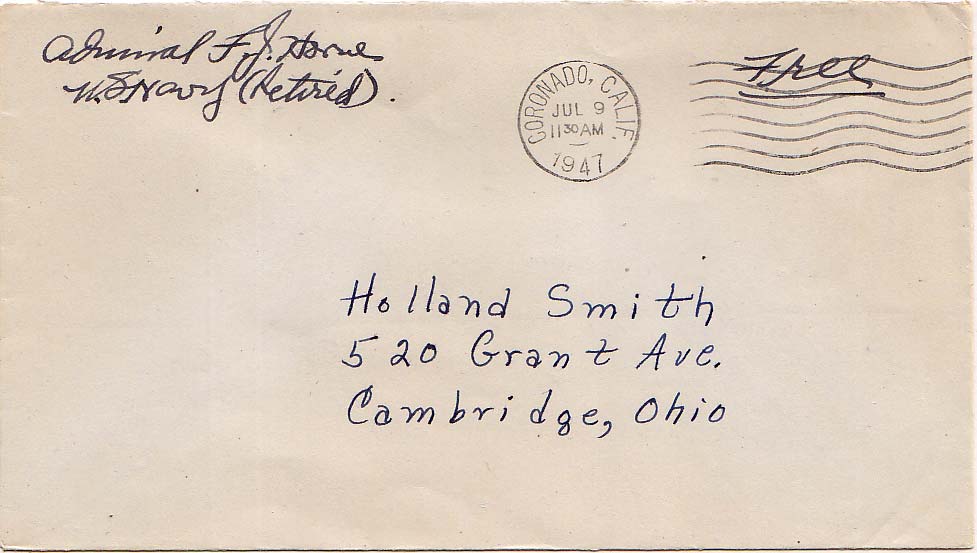 Admiral F. J. Horne
U.S Navy (Retired).
CORONADO, CALIF.
JUL 9
11 30 AM
1947
Free
Holland Smith
520 Grant Ave.
Cambridge, Ohio